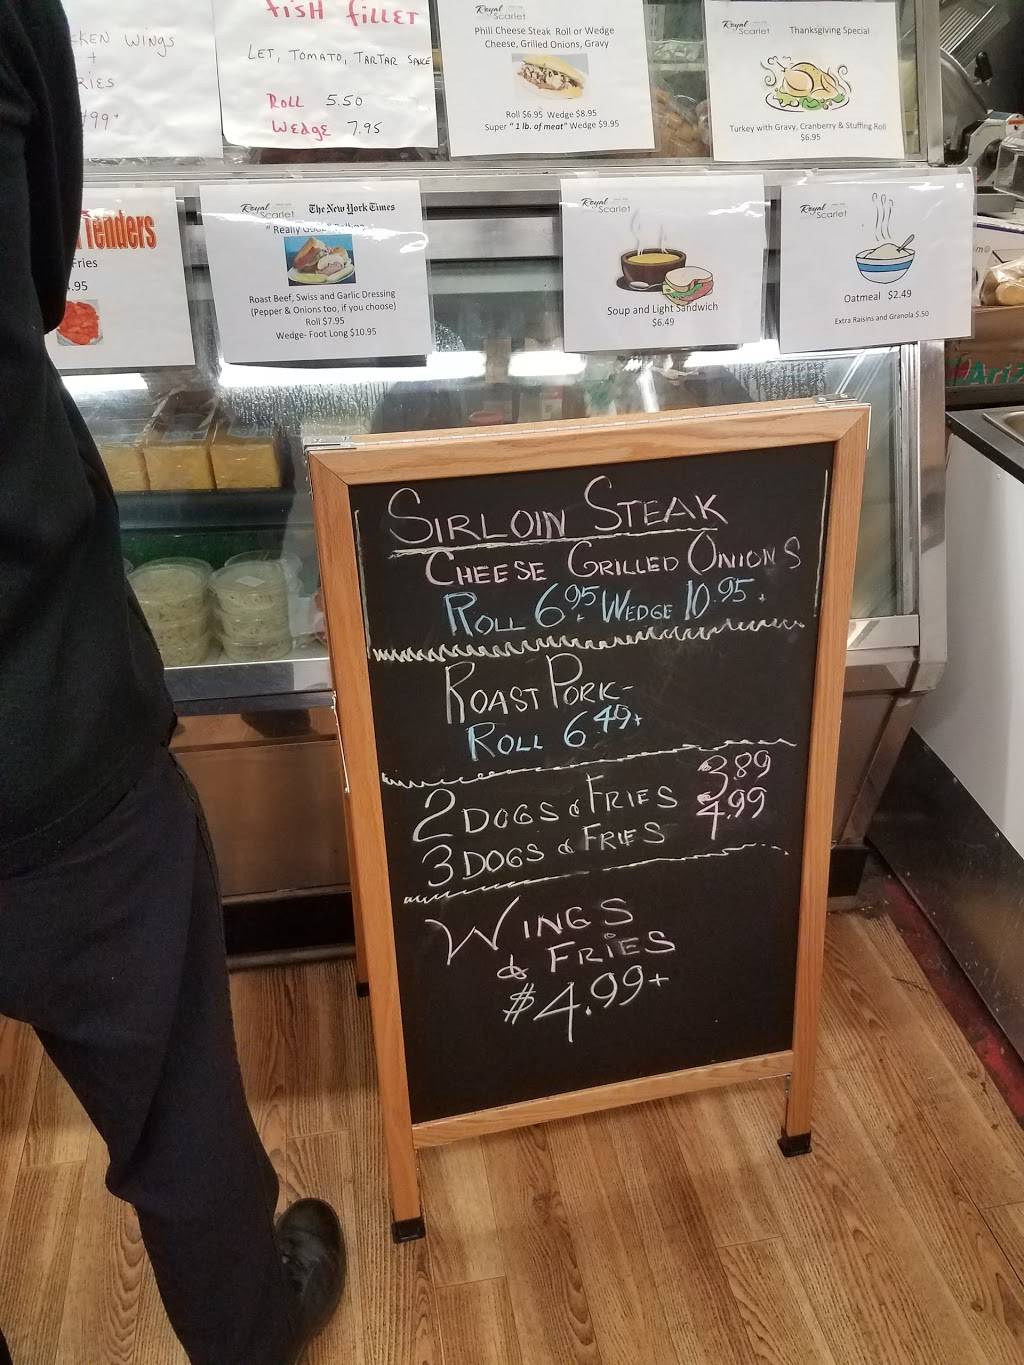 WINGS
+
RIES
499+
FISH FILLET
LET, TOMATO, TARTAR SAUCE
ROLL 5.50
WEDGE 7.95
Royal Scarlet
Phili Cheese Steak Roll or Wedge
Cheese, Grilled Onions, Gravy
Roll $6.95 Wedge $8.95
Super "1 lb. of meat" Wedge $9.95
Royal Scarlet
Thanksgiving Special
Turkey with Gravy, Cranberry & Stuffing Roll
$6.95
Tenders
Fries
.95
Royal Scarlet
The New York Times
"Really
Roast Beef, Swiss and Garlic Dressing
(Pepper & Onions too, if you choose)
Roll $7.95
Wedge- Foot Long $10.95
Royal Scarlet
Soup and Light Sandwich
$6.49
Royal Scarlet
Oatmeal $2.49
Extra Raisins and Granola $.50
SIRLOIN STEAK
CHEESE GRILLED ONIONS
ROLL 6.95+ WEDGE 10.95+
ROAST PORK-
ROLL 6.49+
2 DOGS & FRIES 3.89
3 DOGS & FRIES 4.99
WINGS
& FRIES
$4.99+